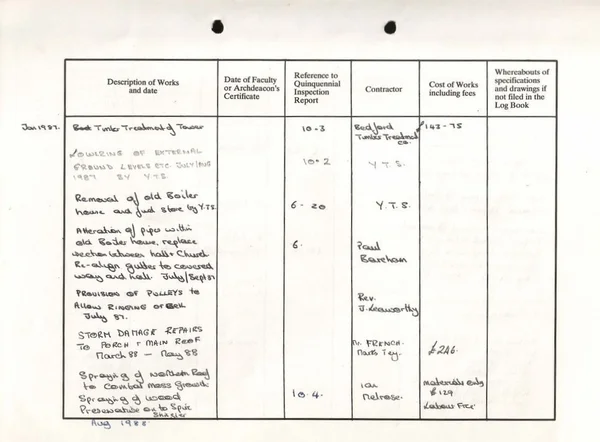 Description of Works
and date
Date of Faculty
or Archdeacon's
Certificate
Reference to
Quinquennial
Inspection
Report
Contractor
Cost of Works
including fees
Whereabouts of
specifications
and drawings if
not filed in the
Log Book
Jan 1987.
Timber Treatment of Tower
10-3
Bedford
Timber Treatment
Co.
£143-75
LOWERING OF EXTERNAL
GROUND LEVELS ETC. JULY/AUG
1987 BY Y.T.S.
10-2
Y.T.S.
Removal of old Boiler
house and fuel store by Y.T.S.
6-20
Y.T.S.
Alteration of pipes within
old Boiler house, replace
section between hall & Church
Re-align gutter to covered
way and hall. July/Sept 87
6.
Paul
Bareham
PROVISION OF PULLEYS TO
ALLOW RINGING OF BELL
July 87.
Rev.
J. Leeworthy
STORM DAMAGE REPAIRS
TO PORCH & MAIN ROOF
March 88 - May 88
Mr. FRENCH.
Marks Tey.
£246.
Spraying of Northern Roof
to combat moss growth.
Spraying of wood
Preservative on to Spire
Shingles
Aug 1988.
10.4.
Ian
Melrose.
materials only
£129
Labour Free.